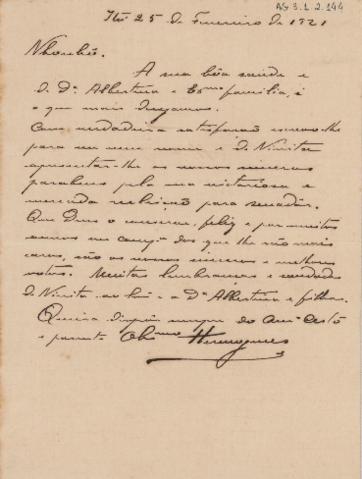 AG 3.1.2.144
Itú 25 de Fevereiro de 1921
Nhonhô.
A sua bôa saúde e
de Dª Albertina e Exma familia, é
o que mais desejamos.
Com verdadeira satisfação escrevo-lhe
para em meu nome e de Ninita
apresentar-lhe as nossos sinceros
parabens pela sua victoriosa e
merecida reeleição para senador.
Que Deus o conserve, feliz e por muitos
annos no dos que lhe são mais
caros, são os nossos sinceros e melhores
votos. Muitas lembranças e saudades
de Ninita ao e a Dª Albertina e filhos.
Queira dispôr sempre do Amº
e parente Obmo Hermogenes